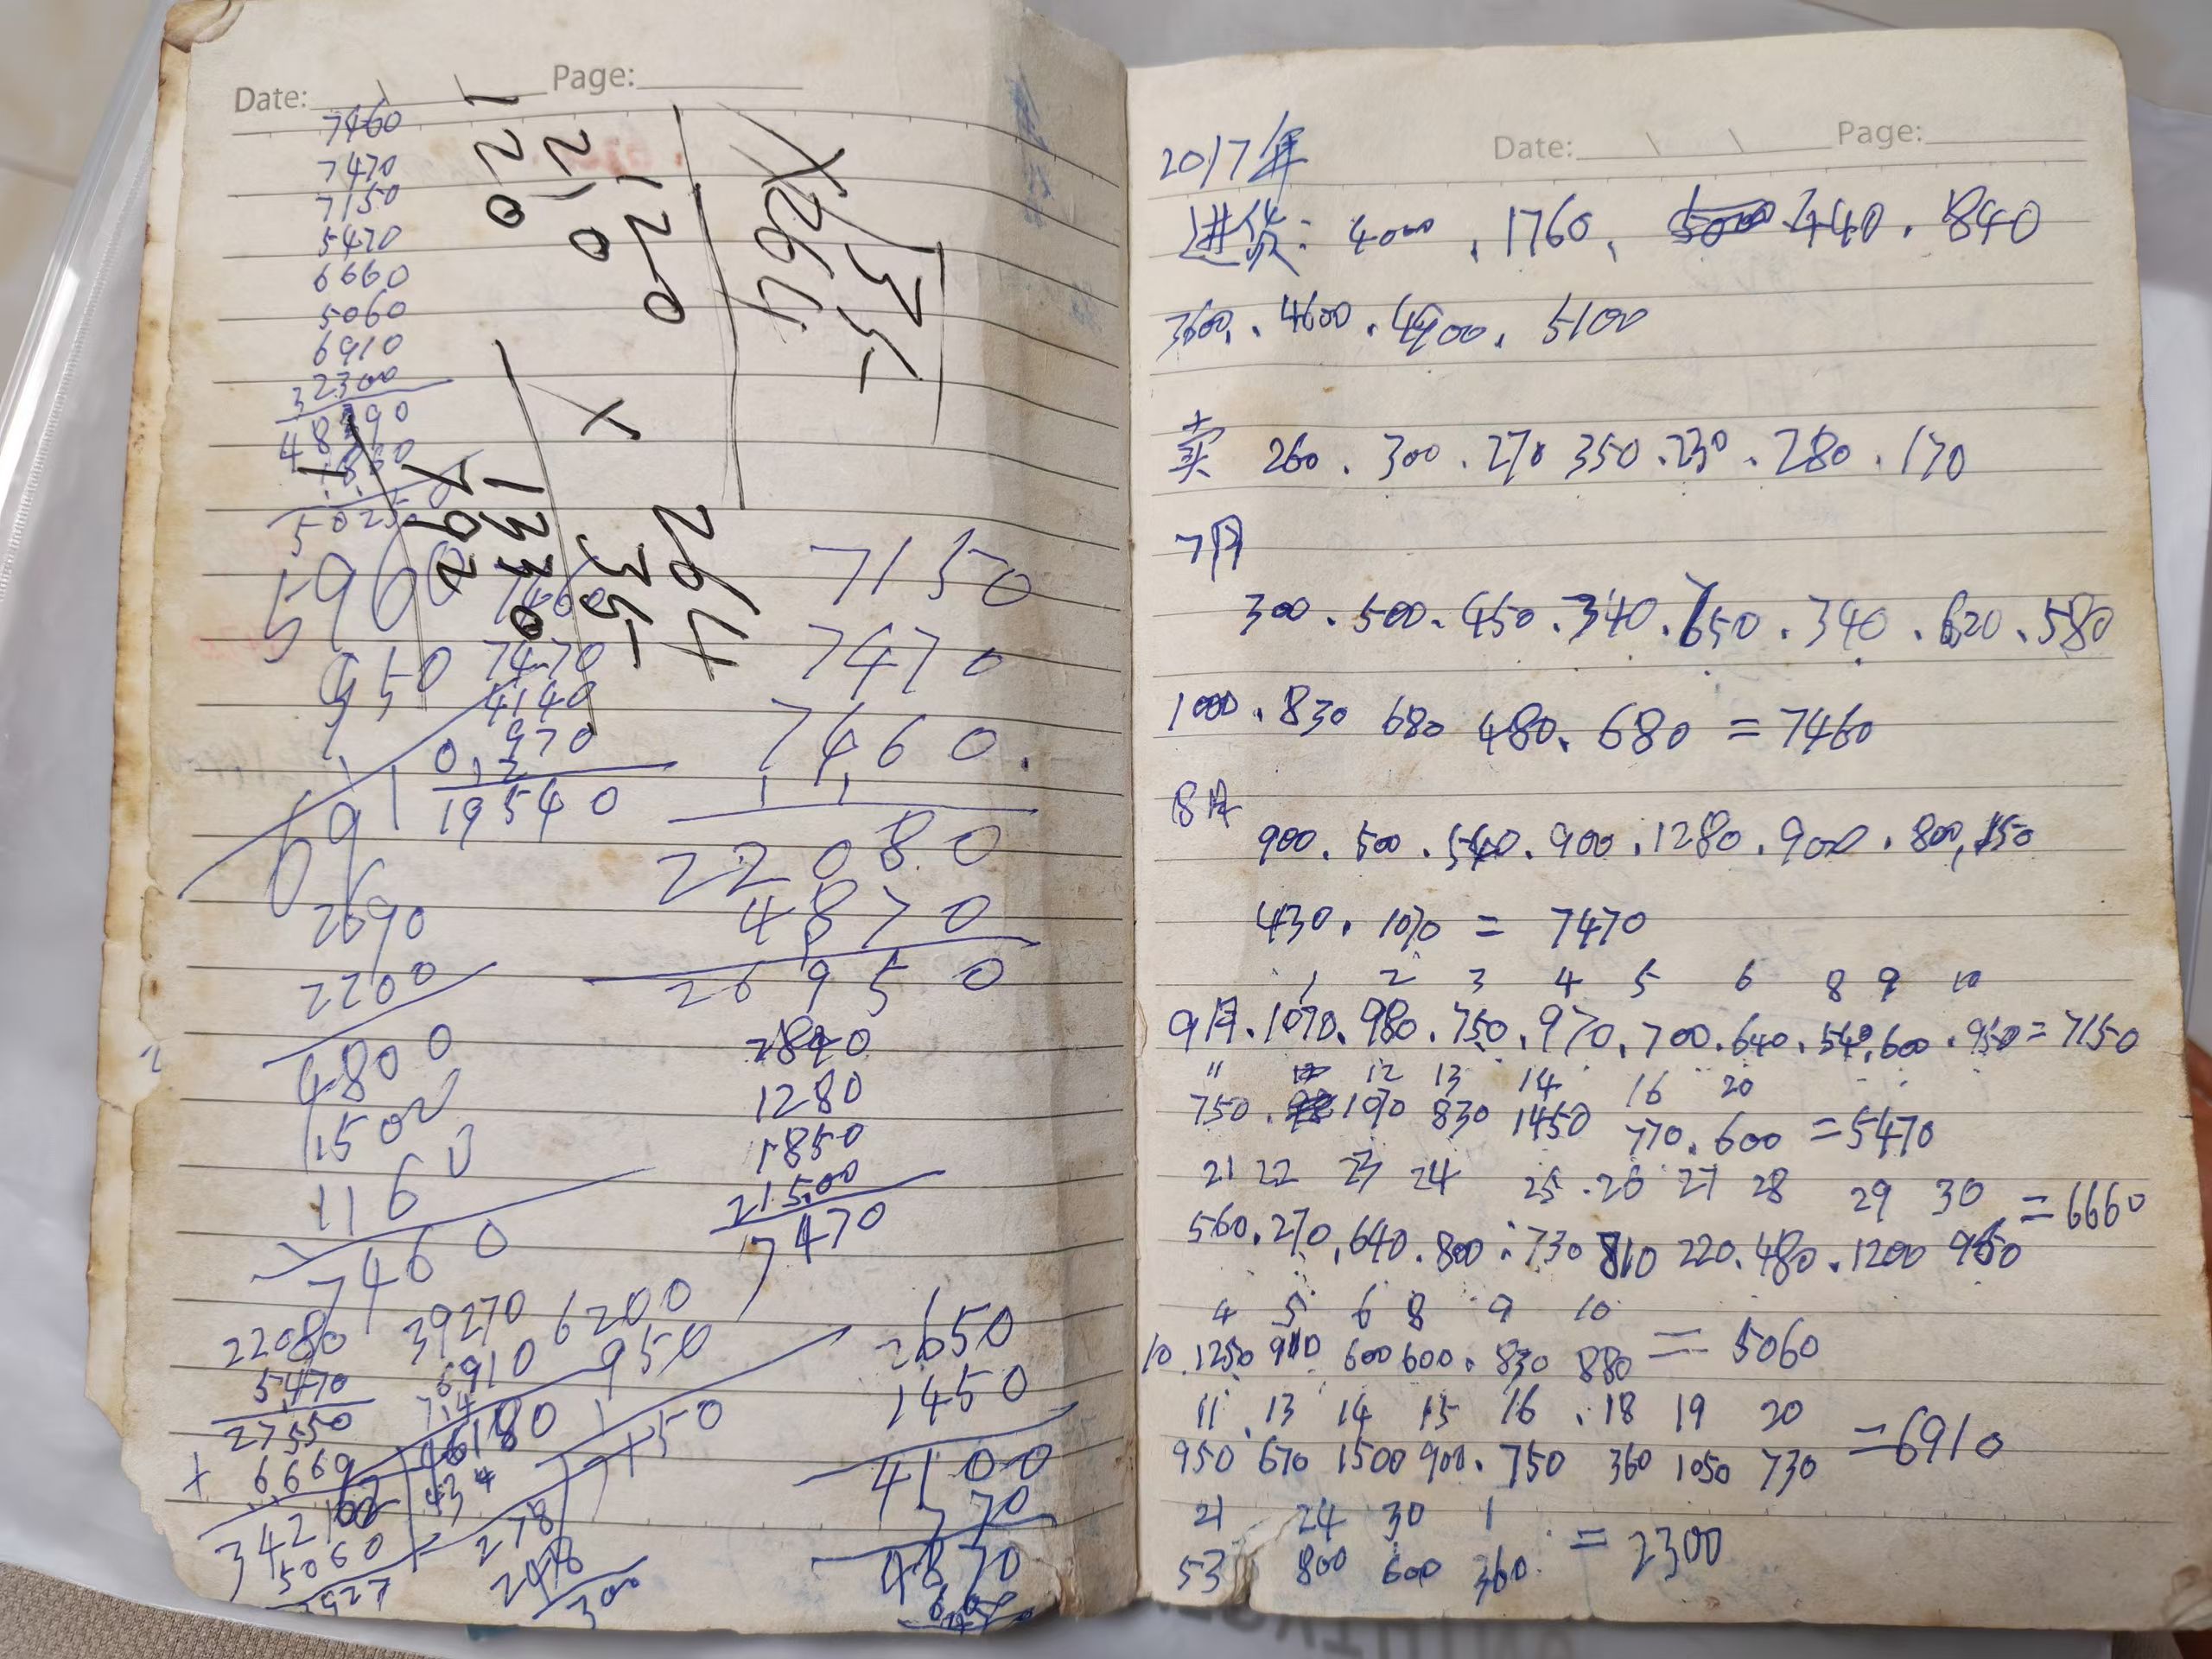 Date: Page:
7460
7470
7150
5470
6660
5060
6910
2300
120
210
1200
X264
264
35
1330
5960
7460
950
7470
4140
970
19540
691
7150
7470
7460
22080
4870
26950
2690
2200
4800
1500
1160
7460
1280
1850
1500
7470
22080
5470
27550
+ 6660
5060
39270
6910
46180
6200
950
7150
278
300
2650
1450
4100
770
4870
Date: Page:
2017年
进货: 4000 . 1760 . 440 . 840
3600 . 4600 . 4900 . 5100
卖 260 . 300 . 270 350 . 230 . 280 . 170
7月
300 . 500 . 450 . 340 . 650 . 340 . 620 . 580
1000 . 830 680 480 . 680 = 7460
8月
900 . 500 . 540 . 900 . 1280 . 900 . 800 , 150
430 . 1070 = 7470
1 2 3 4 5 6 8 9 10
9月 . 1070 . 980 . 750 . 970 . 700 . 640 . 540 . 600 . 950 = 7150
11 12 13 14 16 20
750 . 1070 830 1450 770 . 600 = 5470
21 22 23 24 25 . 26 27 28 29 30 = 6660
560 . 270 , 640 . 800 . 730 810 220 . 480 . 1200 950
4 5 6 8 9 10
10 . 1250 910 600 600 . 830 880 = 5060
11 . 13 14 15 16 . 18 19 20
950 670 1500 900 . 750 360 1050 730 = 6910
21 24 30 1
53 800 600 360 = 2300